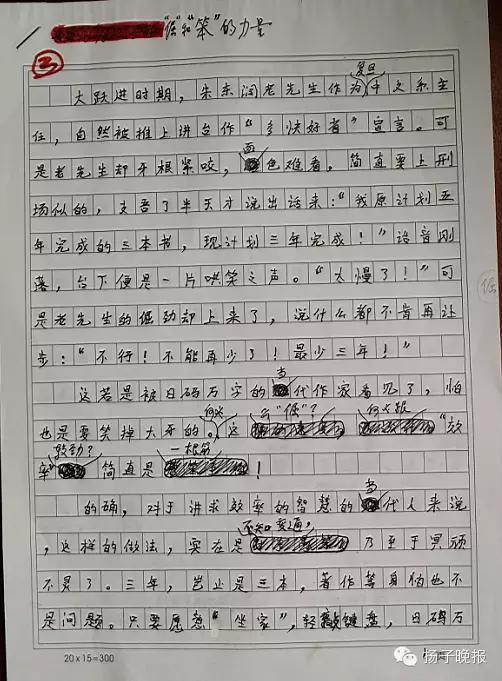 "倔"和"笨"的力量
3
复旦
大跃进时期，朱东润老先生作为中文系主
任，自然被推上讲台作"多快好省"宣言。可
面
是老先生却牙根紧咬，色难看，简直要上刑
场似的，支吾了半天才说出话来："我原计划五
年完成的三本书，现计划三年完成！"话音刚
落，台下便是一片哄笑之声。"太慢了！"可
是老先生的倔劲却上来了，说什么都不肯再让
步："不行！不能再少了！最少三年！"
当
这若是被日码万字的代作家看见了，怕
何必 么"倔"？ 何必跟
也是要笑掉大牙的。这 "效
较劲？ 一根筋
率" 简直是！
当
的确，对于讲求效率的智慧的代人来说
不知变通，
，这样的做法，实在是 乃至于冥顽
不灵了。三年，岂止是三本，著作等身怕也不
是问题。只要愿意"坐家"，轻敲键盘，日码万
20×15=300
扬子晚报
倔